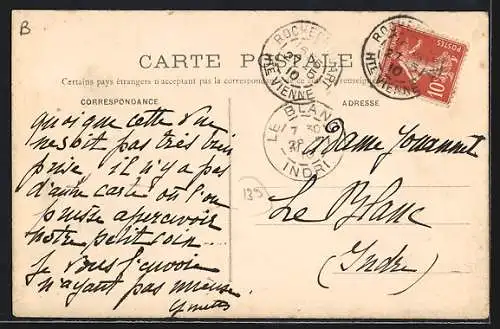 B
CARTE POSTALE
Certains pays étrangers n'acceptent pas la correspondance
CORRESPONDANCE
ADRESSE
quoique cette vue
ne soit pas très bien
prise, il n'y a pas
d'autre carte où l'on
puisse apercevoir
notre petit coin
je vous l'envoie
n'ayant pas mieux
Yvette
Madame Jouannet
Le Blanc
(Indre)
135
ROCHECHOUART
HTE VIENNE
LE BLANC
7 30
INDRE
ROCHE
HTE VIENNE
POSTES
10